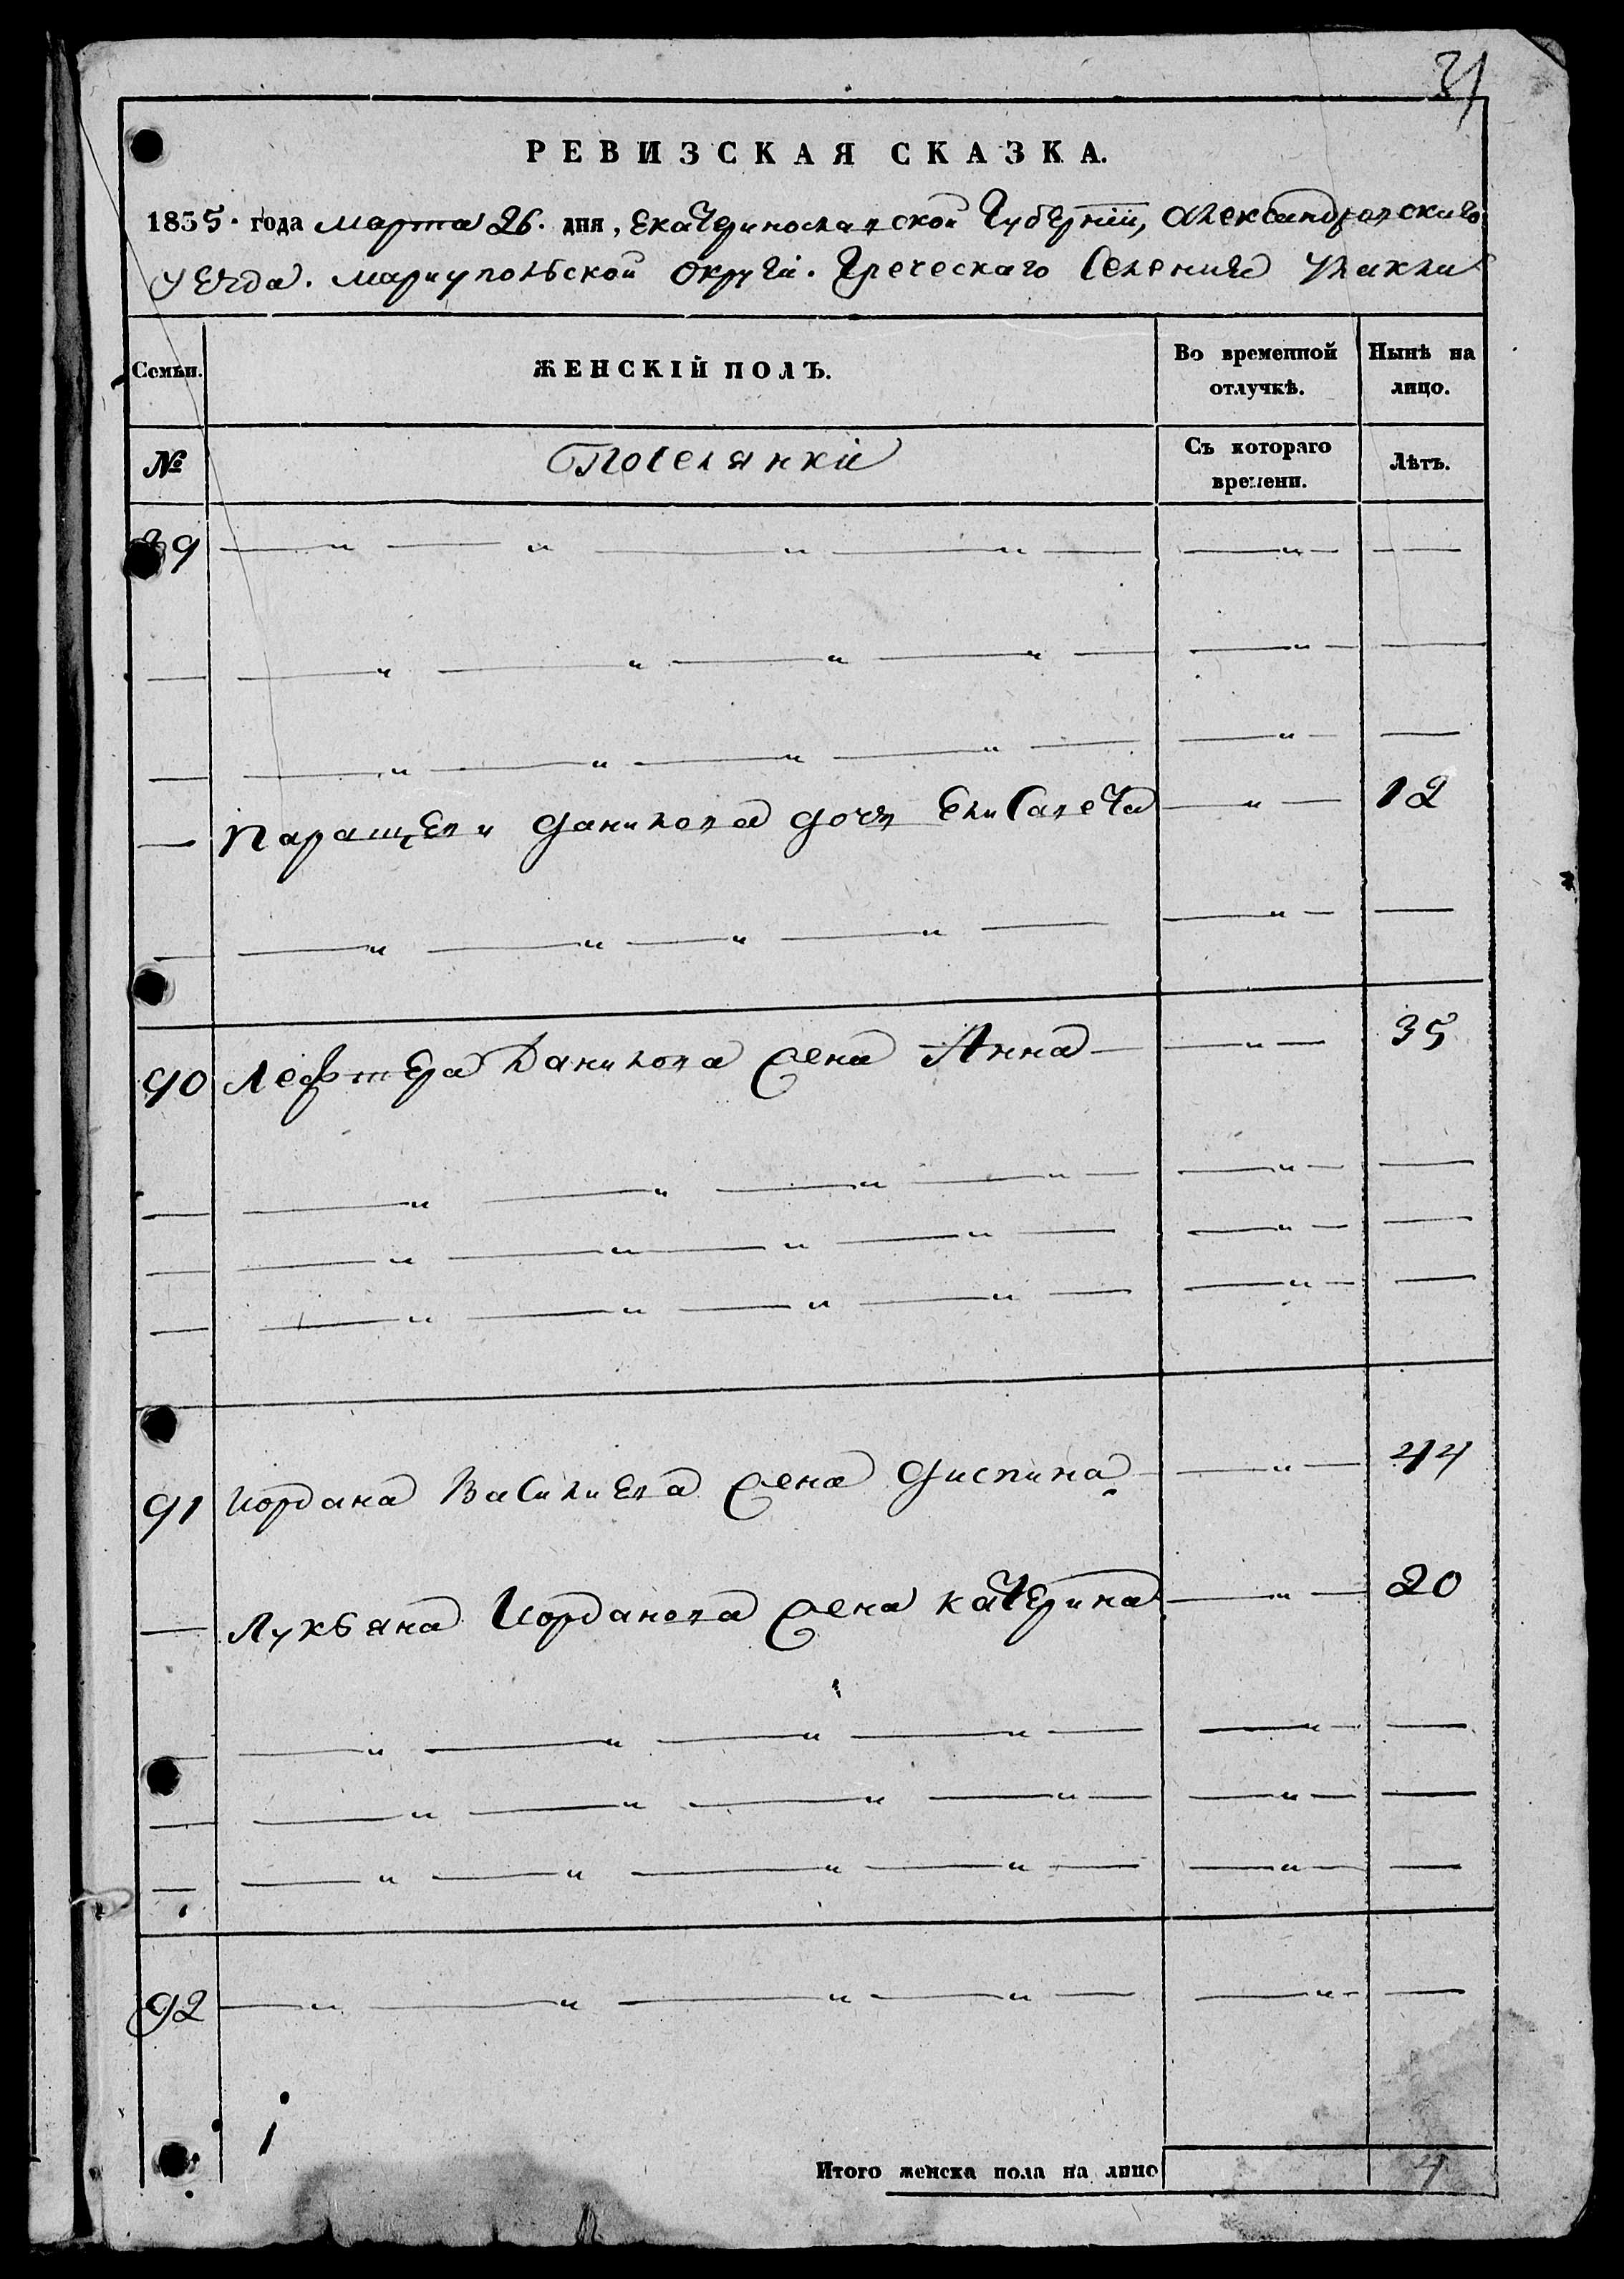 31
РЕВИЗСКАЯ СКАЗКА.
1835. года марта 26. дня, Екатеринославской Губернии, Александровскаго
уезда. Мариупольской округи. Греческаго Селения
Семьи. ЖЕНСКІЙ ПОЛЪ. Во временной отлучкѣ. Нынѣ на лицо.
№ Поселянки Съ котораго времени. Лѣтъ.
89 — „ — „ — „ — „ — — „ — —
— — „ — „ — „ — „ — — „ — —
— — „ — „ — „ — „ — — „ — —
— Паращеви Данилова дочь Елисавета — „ — 12
— — „ — „ — „ — „ — — „ — —
90 Лефтера Данилова жена Анна — — „ — 35
— — „ — „ — „ — „ — — „ — —
— — „ — „ — „ — „ — — „ — —
— — „ — „ — „ — „ — — „ — —
91 Иордана Василиева жена Диспина — — „ — 44
— Лукьяна Иорданова жена Катерина — „ — 20
— — „ — „ — „ — „ — — „ — —
— — „ — „ — „ — „ — — „ — —
— — „ — „ — „ — „ — — „ — —
92 — „ — „ — „ — „ — — „ — —
Итого женска пола на лицо 4